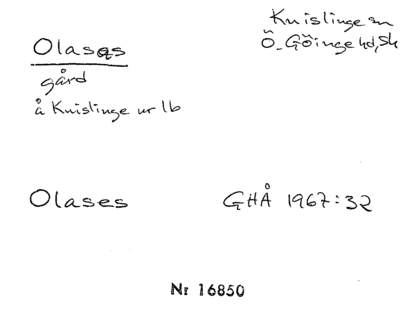 Olasas
Knislinge sn
Ö. Göinge hd, Sk
gård
å Knislinge nr 1b
Olases
GHÅ 1967:32
Nr 16850